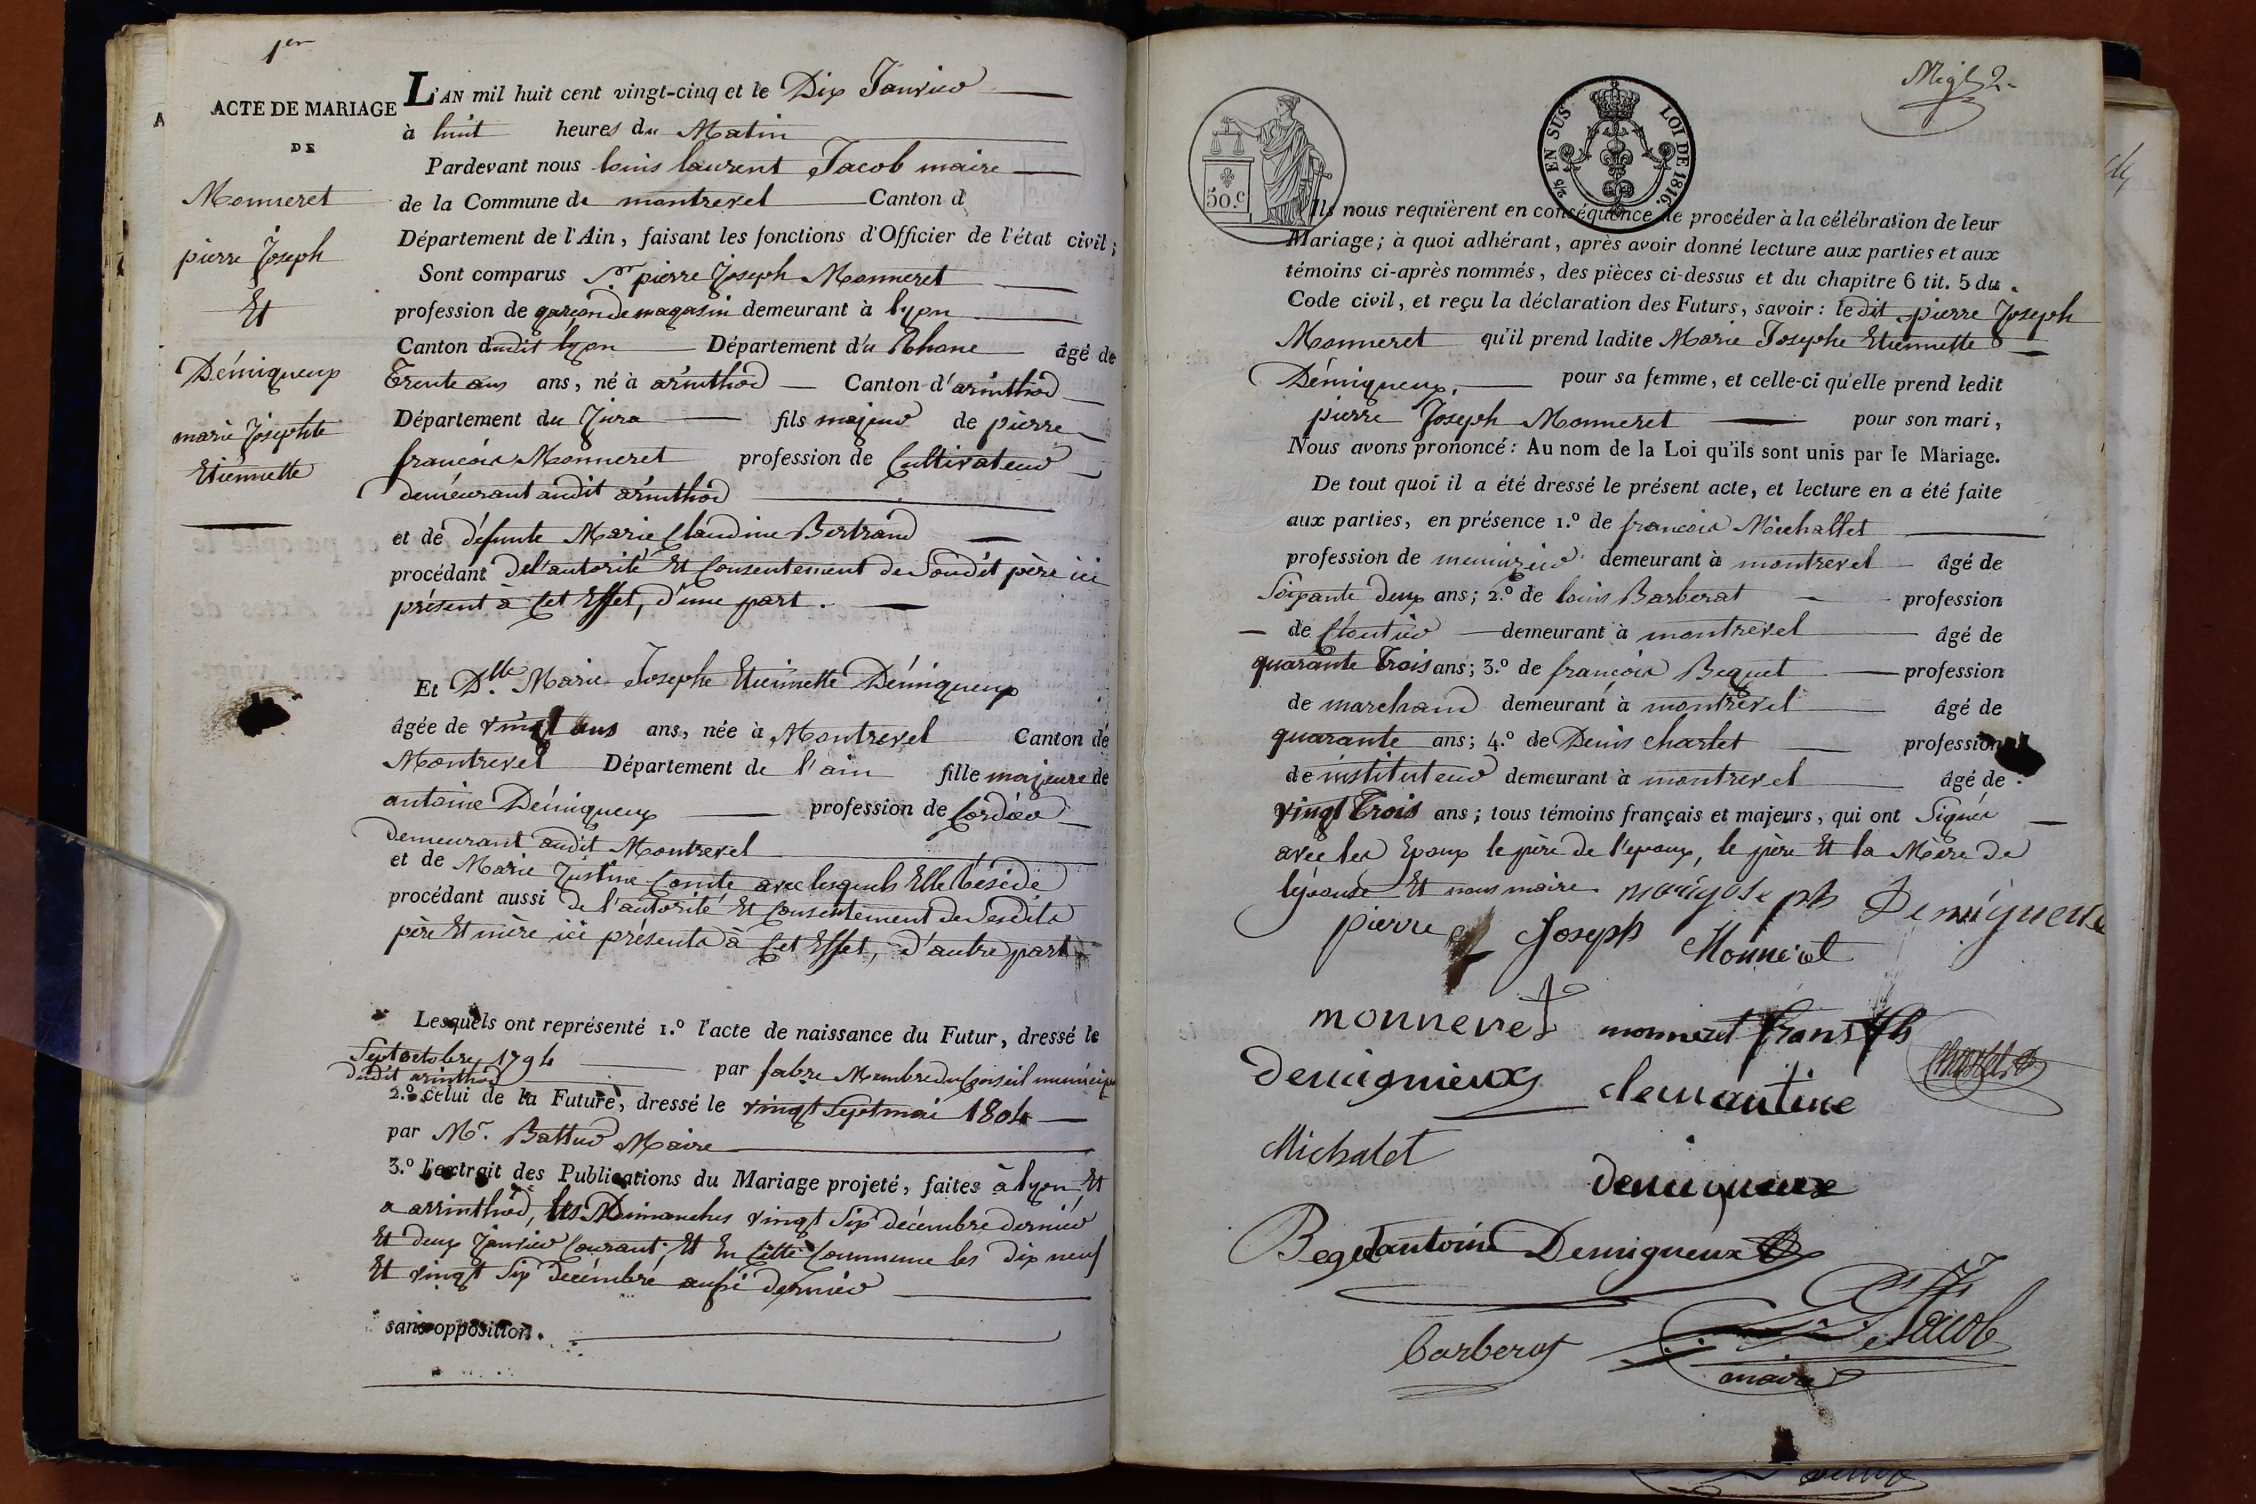 1er
ACTE DE MARIAGE
DE
Monneret
pierre Joseph
Et
Démiqueux
marie Josephte
Etiennette
L'AN mil huit cent vingt-cinq et le Dix Janvier
à huit heures du Matin
Pardevant nous louis laurent Jacob maire
de la Commune de montrevel Canton d
Département de l'Ain, faisant les fonctions d'Officier de l'état civil;
Sont comparus Sr. pierre Joseph Monneret
profession de garçon de magasin demeurant à lyon
Canton dudit lyon Département du Rhone âgé de
Trente ans ans, né à arinthod Canton d'arinthod
Département du Jura fils majeur de pierre
francois Monneret profession de Cultivateur
demeurant audit arinthod
et de défunte Marie Claudine Bertrand
procédant de l'autorité Et Consentement de Sondit père ici
présent à Cet Effet, d'une part.
Et Dlle. Marie Josephe Etiennette Démiqueux
âgée de vingt ans ans, née à Montrevel Canton de
Montrevel Département de l'ain fille majeure de
antoine Démiqueux profession de Cordier
demeurant audit Montrevel
et de Marie Justine Comte avec lesquels Elle Réside
procédant aussi de l'autorité Et Consentement de Sesdits
père Et mère ici présents à Cet Effet, d'autre part
Lesquels ont représenté 1.º l'acte de naissance du Futur, dressé le
Sept octobre 1794 par fabre Membre du Conseil municipal
dudit arinthod
2.º celui de la Future, dressé le vingt Sept mai 1804
par Mr. Battur Maire
3.º l'extrait des Publications du Mariage projeté, faites à lyon, Et
a arrinthod, les Dimanches vingt Six décembre dernier
Et deux Janvier Courant; Et En Cette Commune les dix neuf
Et vingt Six Decémbre aussi dernier
sans opposition.
50.c
2/0 EN SUS LOI DE 1816.
Ils nous requièrent en conséquence de procéder à la célébration de leur
Mariage; à quoi adhérant, après avoir donné lecture aux parties et aux
témoins ci-après nommés, des pièces ci-dessus et du chapitre 6 tit. 5 du
Code civil, et reçu la déclaration des Futurs, savoir: ledit pierre Joseph
Monneret qu'il prend ladite Marie Josephe Etiennette
Démiqueux, pour sa femme, et celle-ci qu'elle prend ledit
pierre Joseph Monneret pour son mari,
Nous avons prononcé: Au nom de la Loi qu'ils sont unis par le Mariage.
De tout quoi il a été dressé le présent acte, et lecture en a été faite
aux parties, en présence 1.º de francois Michallet
profession de menuizier demeurant à montrevel âgé de
Soixante deux ans; 2.º de louis Barberat profession
de Cloutier demeurant à montrevel âgé de
quarante Trois ans; 3.º de françois Bequet profession
de marchand demeurant à montrevel âgé de
quarante ans; 4.º de Denis charlet profession
de instituteur demeurant à montrevel âgé de
vingt Trois ans; tous témoins français et majeurs, qui ont Signés
avec les Epoux le père de l'epoux, le père Et la Mère de
lépouse Et nous maire
pierre Joseph Monneret
monneret monneret frans
demignieux clemantine
Michalet demiqueux
Beget antoine Demigneux
barberat Jacob
maire